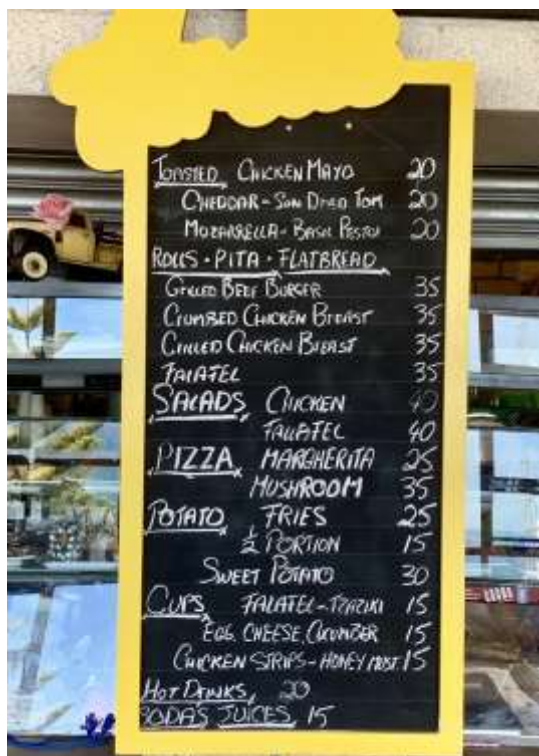 TOASTED CHICKEN MAYO 20
CHEDDAR - SUN DRIED TOM 20
MOZARRELLA - BASIL PESTO 20
ROLLS · PITA · FLATBREAD
GRILLED BEEF BURGER 35
CRUMBED CHICKEN BREAST 35
GRILLED CHICKEN BREAST 35
FALAFEL 35
SALADS CHICKEN 40
FALLAFEL 40
PIZZA MARGHERITA 25
MUSHROOM 35
POTATO FRIES 25
½ PORTION 15
SWEET POTATO 30
CUPS FALAFEL - TZAZIKI 15
EGG, CHEESE, CUCUMBER 15
CHICKEN STRIPS - HONEY MUST 15
HOT DRINKS 20
SODAS JUICES 15